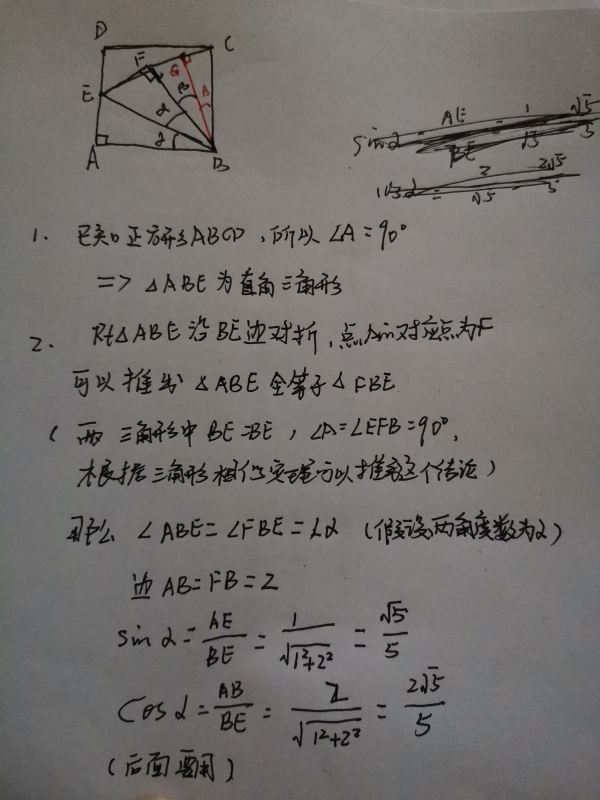 D
C
F
G
E
β
β
α
α
A
B
sinα = AE/BE = 1/√5 = √5/5
cosα = 2/√5 = 2√5/5
1. 已知正方形ABCD，所以∠A=90°
=> △ABE为直角三角形
2. Rt△ABE沿BE边对折，点A的对应点为F
可以推出△ABE全等于△FBE
(两三角形中BE=BE，∠A=∠EFB=90°，
根据三角形相似定理可以推出这个结论)
那么 ∠ABE=∠FBE=∠α (假设两角度数为α)
边AB=FB=2
sinα = AE/BE = 1/√(1²+2²) = √5/5
cosα = AB/BE = 2/√(1²+2²) = 2√5/5
(后面要用)